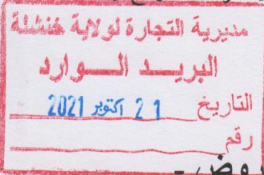 مديرية التجارة لولاية خنشلة
البريد الوارد
التاريخ 21 اكتوبر 2021
رقم